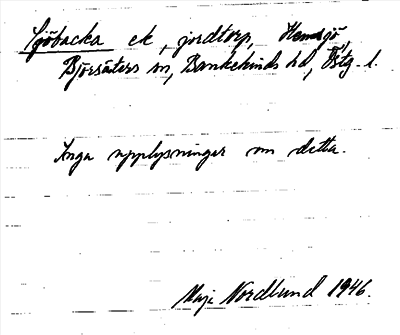 Sjöbacka ek, jordtorp, Hemsjö,
Björsäters sn, Bankekinds hd, Östg. l.
Inga upplysningar om detta.
Maja Nordlund 1946.